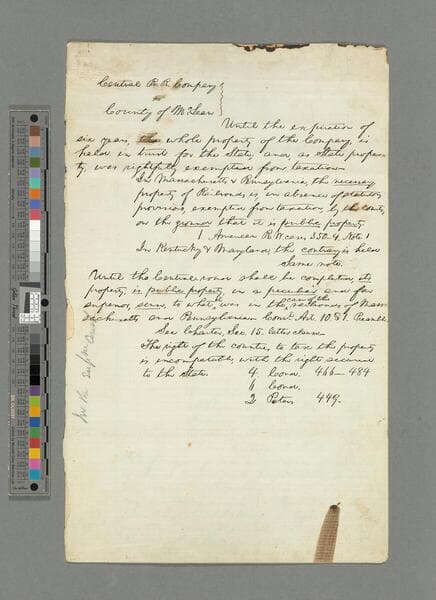 Central R. R. Company
vs
County of McLean
Until the expiration of
six years, the whole property of the Company, is
held in trust for the State, and as State proper-
ty, was rightfully exempted from taxation
In Massachusetts & Pennsylvania, the necessary
property of Railroads, is in absence of statutory
provision, exempted from taxation, by the courts,
on the ground that it is public property
1 American R. W. cases 350-4. Note 1
In Kentucky & Maryland, the contrary is held
Same note.
Until the Central road shall be completed, its
property, is public property, in a peculiar and far
superior, sense, to what it was in the case of the railroads, of Massa-
chusetts and Pennsylvania Const. Art. 10 & 1. Preamble.
See Charter, Sec. 15. latter clause
The right of the counties, to tax the property
is incompatible, with the right secured
to the State.
4 Cond. 466-484
6 Cond.
2 Peters 449-